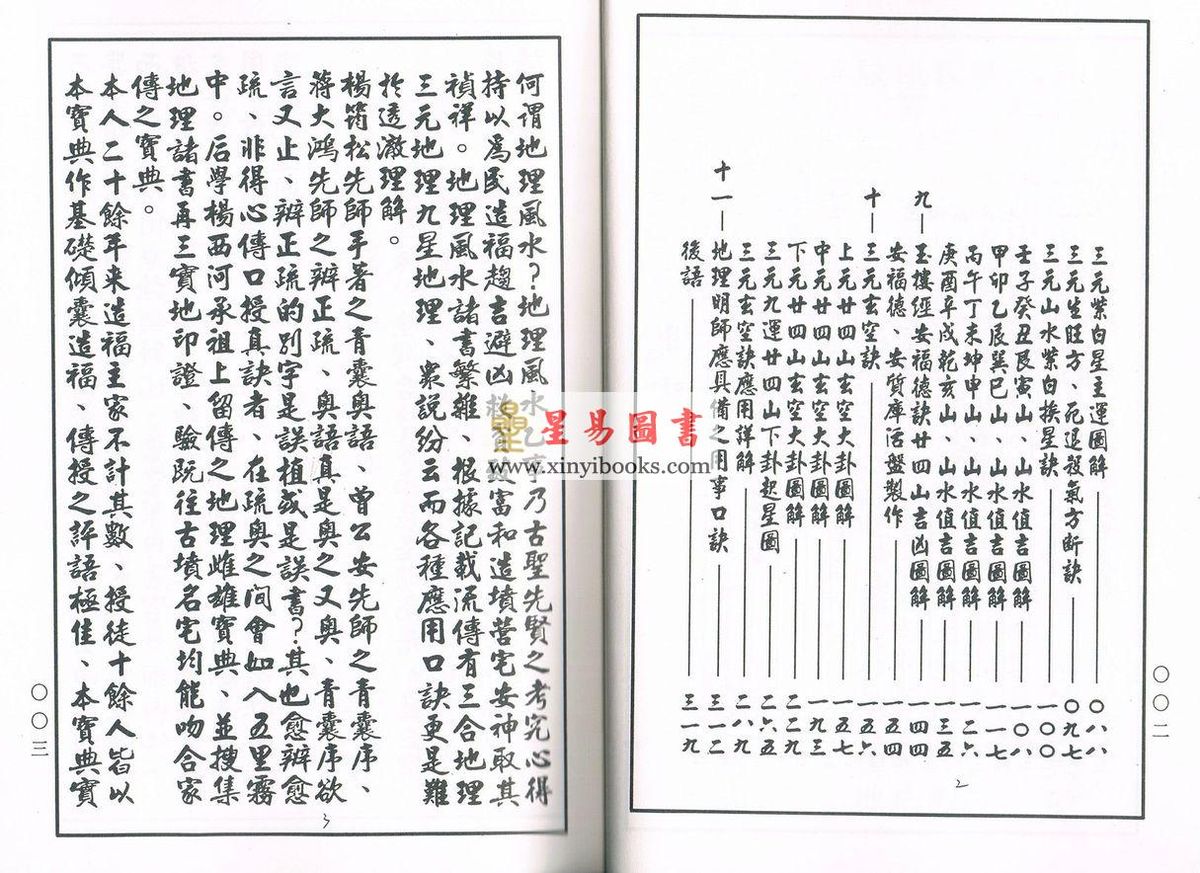 三元紫白星主運圖解 ○八八
三元生旺方、死退殺氣方斷訣 ○九七
三元山水紫白挨星訣 一○○
壬子癸丑艮寅山、山水值吉圖解 一○八
甲卯乙辰巽巳山、山水值吉圖解 一一七
丙午丁未坤申山、山水值吉圖解 一二六
庚酉辛戌乾亥山、山水值吉圖解 一三五
九 玉樓經安福德訣廿四山吉凶圖解 一四四
安福德、安貨庫活盤製作 一五四
十 三元玄空訣 一五六
上元廿四山玄空大卦圖解 一五七
中元廿四山玄空大卦圖解 一九三
下元廿四山玄空大卦圖解 二二九
三元九運廿四山下卦起星圖 二六五
三元玄空訣應用詳解 二八九
十一 地理明師應具備之用事口訣 三一二
後語 三一九
○○二
2
何謂地理風水？地理風水乙事乃古聖先賢之考究心得
持以為民造福趨吉避凶救貧致富和造墳營宅安神取其
禎祥。地理風水諸書繁雜、根據記載流傳有三合地理
三元地理九星地理、衆說紛云而各種應用口訣更是難
於透澈理解。
楊筠松先師手著之青囊奧語、曾公安先師之青囊序、
蔣大鴻先師之辨正疏、奧語真是奧之又奧、青囊序欲
言又止、辨正疏的別字是誤植或是誤書？其也愈辨愈
疏、非得心傳口授真訣者、在疏奧之間會如入五里霧
中。后學楊西河承祖上留傳之地理雌雄寶典、並搜集
地理諸書再三實地印證、驗既往古墳名宅均能吻合家
傳之寶典。
本人二十餘年来造福主家不計其數、授徒十餘人皆以
本寶典作基礎傾囊造福、傳授之評語極佳、本寶典實
○○三
3
星易圖書
www.xinyibooks.com